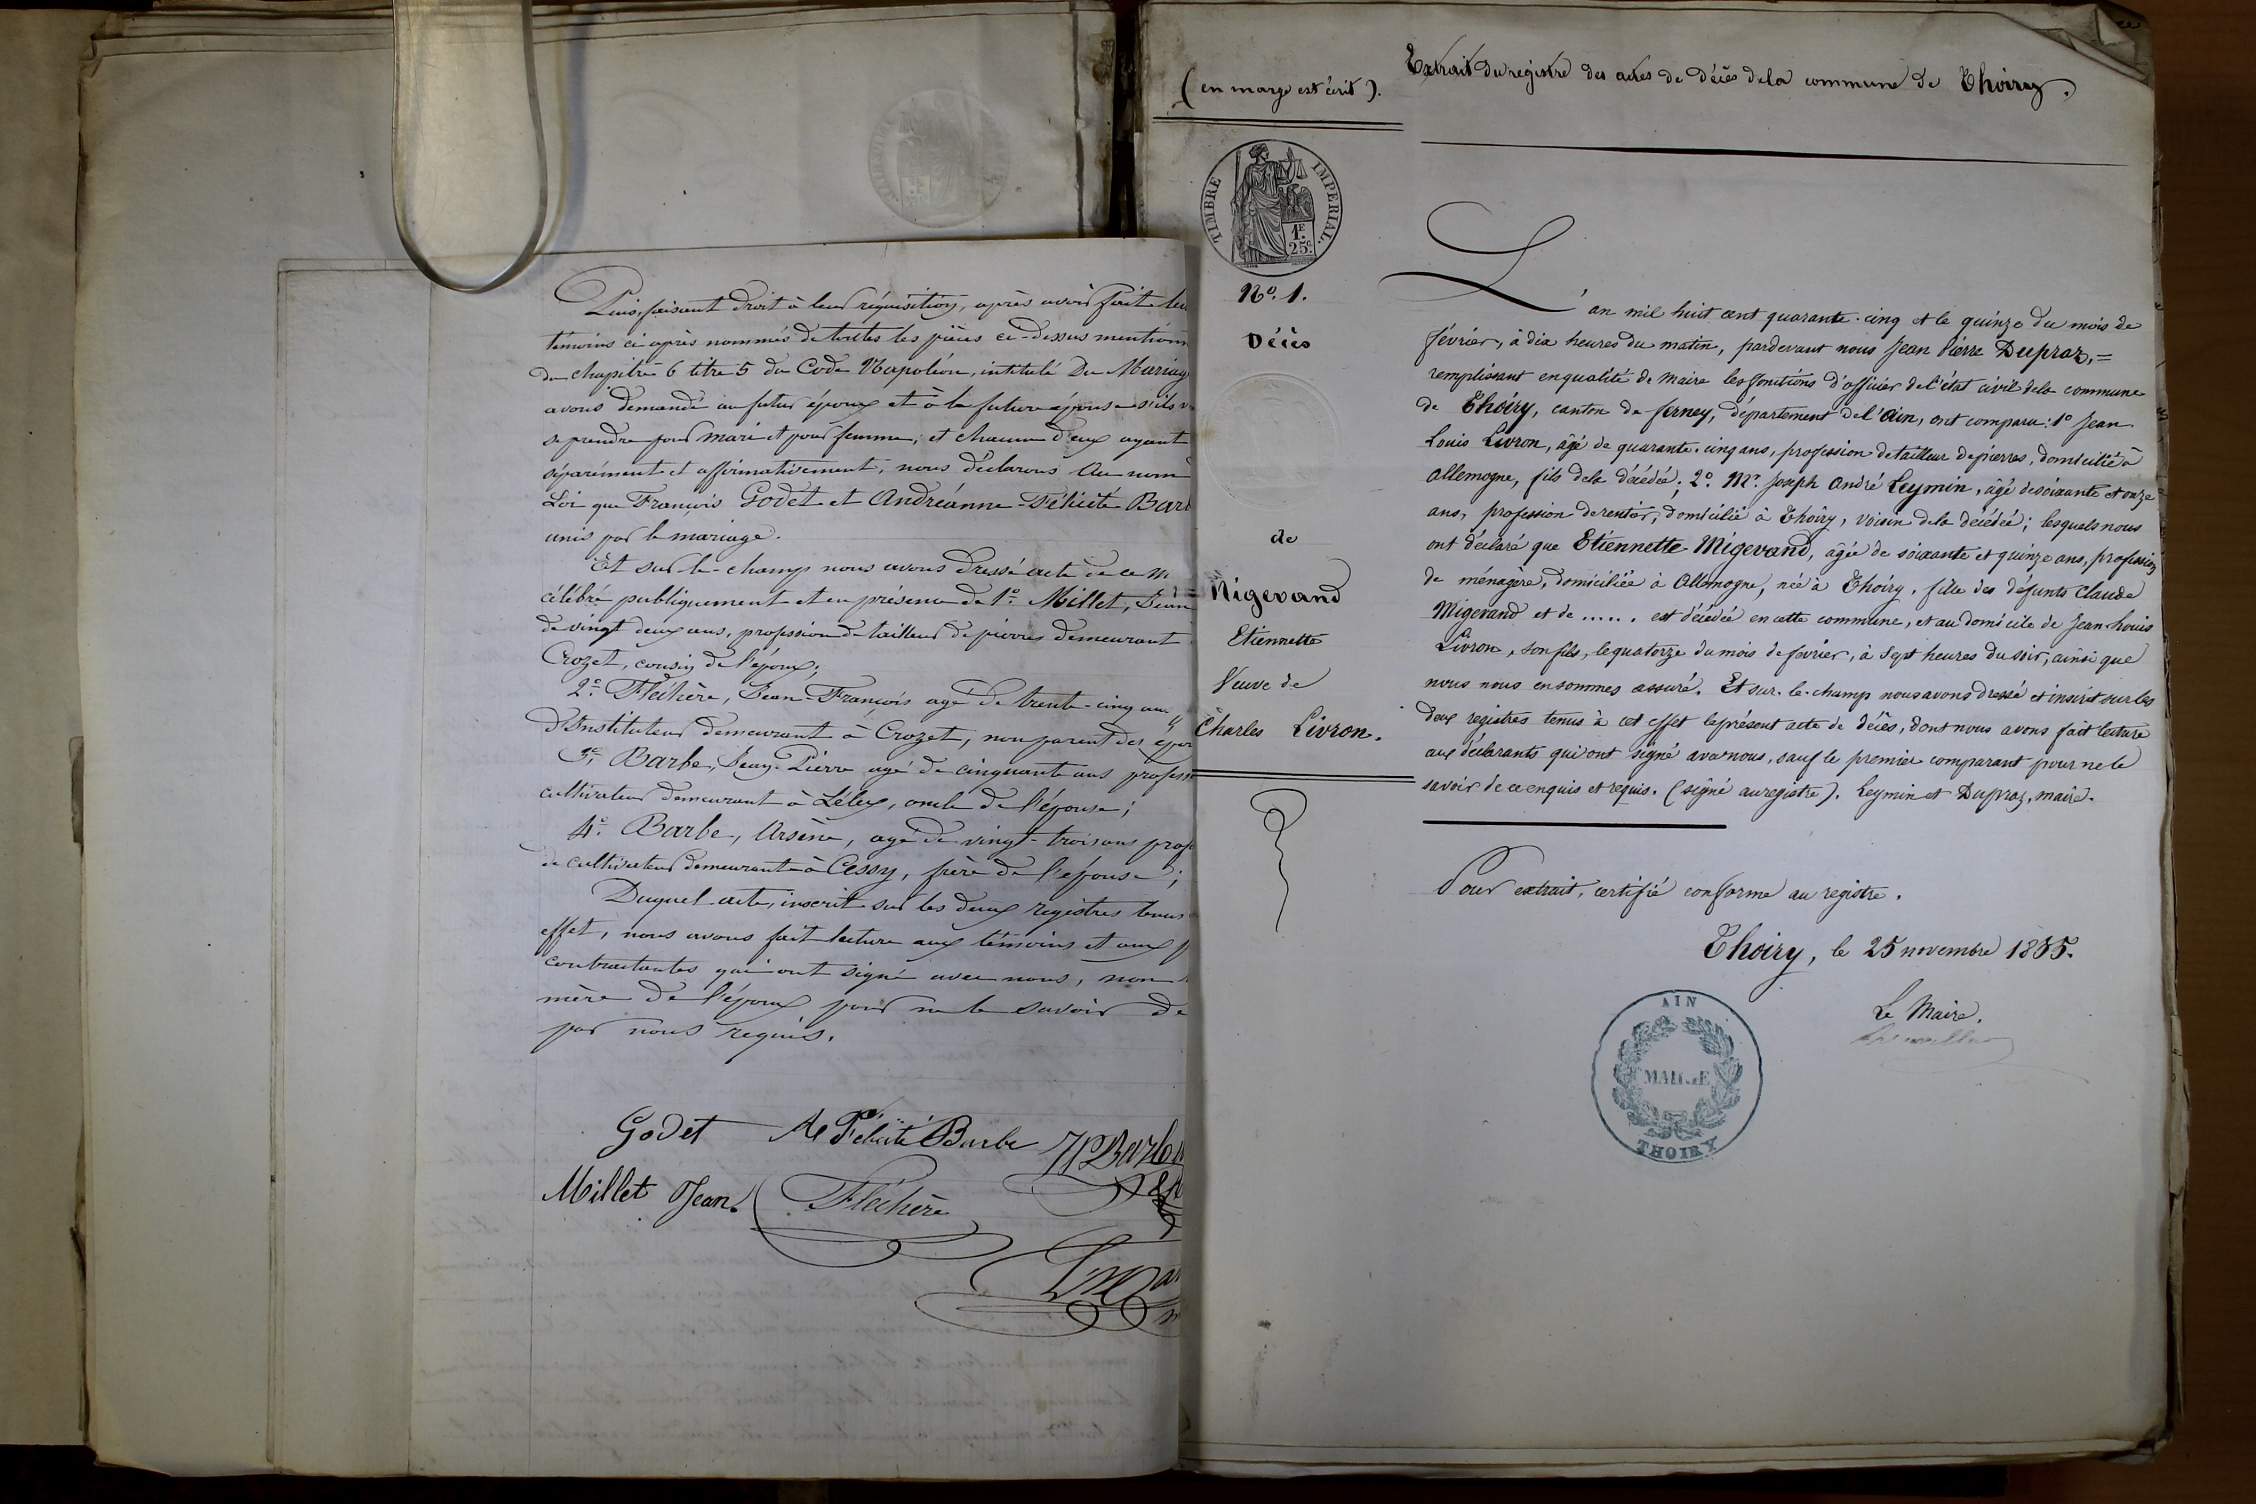 Puis, faisant droit à leur réquisition, après avoir fait lec
témoins ci après nommés de toutes les pièces ci-dessus mentionn
du chapitre 6 titre 5 du Code Napoléon, intitulé Du Mariag
avons demandé au futur époux et à la future épouse s'ils v
se prendre pour mari et pour femme, et chacun d'eux ayant
séparément et affirmativement, nous déclarons Au nom
Loi que François Godet et Andréanne-Félicité Barb
unis par le mariage.
Et sur-le-champ nous avons dressé acte de ce m
célébré publiquement et en présence de 1º Millet, Jean
de vingt deux ans, profession de tailleur de pierres demeurant
Crozet, cousin de l'époux;
2º Fléchère, Jean-François agé de trente-cinq ans
d'Instituteur demeurant à Crozet, non parent des épou
3º Barbe, Jean-Pierre agé de cinquante ans profess
cultivateur demeurant à Lélex, oncle de l'épouse;
4º Barbe, Arsène, agé de vingt-trois ans prof
de cultivateur demeurant à Cessy, frère de l'épouse;
Duquel acte, inscrit sur les deux registres tenus
effet, nous avons fait lecture aux témoins et aux p
contractantes qui ont signé avec nous, non
mère de l'époux pour ne le savoir de
par nous requis.
Godet A Félicité Barbe JP Barbe
Millet Jean Fléchère
(en marge est écrit).
TIMBRE IMPERIAL.
1F.
25c
Nº. 1.
Décès
de
Migevand
Etiennette
Veuve de
Charles Livron.
Extrait du registre des actes de décès de la commune de Thoiry.
L'an mil huit cent quarante-cinq et le quinze du mois de
février, à dix heures du matin, pardevant nous Jean Pierre Dupraz, =
remplissant en qualité de maire les fonctions d'officier de l'état civil de la commune
de Thoiry, canton de ferney, département de l'ain, ont comparu: 1º Jean
Louis Livron, âgé de quarante-cinq ans, profession de tailleur de pierres, domicilié à
allemogne, fils de la décédée; 2º. Mr. Joseph André Leymin, âgé de soixante et onze
ans, profession de rentier, domicilié à Thoiry, voisin de la décédée; lesquels nous
ont déclaré que Etiennette Migevand, âgée de soixante et quinze ans, profession
de ménagère, domiciliée à Allemogne, née à Thoiry, fille des défunts Claude
Migevand et de ...... est décédée en cette commune, et au domicile de Jean-Louis
Livron, son fils, le quatorze du mois de février, à sept heures du soir, ainsi que
nous nous en sommes assuré. Et sur-le-champ nous avons dressé et inscrit sur les
deux registres tenus à cet effet le présent acte de décès, dont nous avons fait lecture
aux déclarants qui ont signé avec nous, sauf le premier comparant pour ne le
savoir de ce enquis et requis. (signé au registre). Leymin et Dupraz, maire.
Pour extrait, certifié conforme au registre.
Thoiry, le 25 novembre 1855.
Le Maire.
AIN
MAIRIE
THOIRY